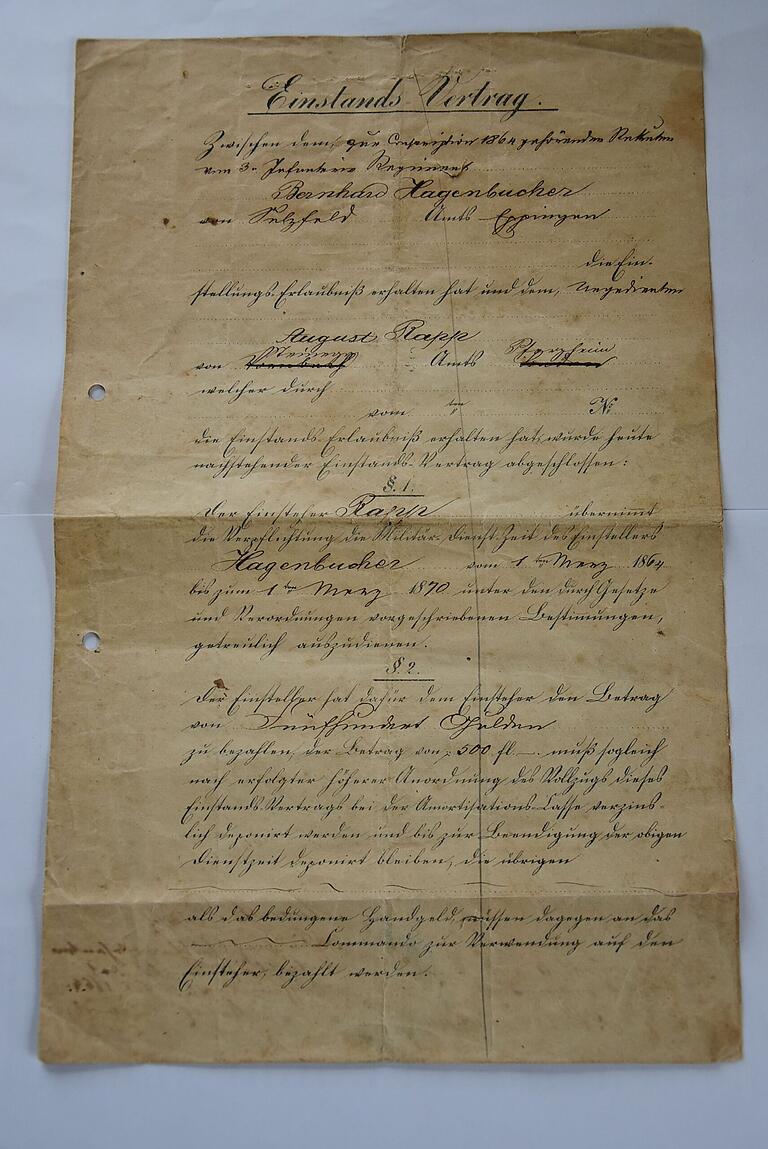 Einstands-Vertrag.
Zwischen dem, zur Conscription 1864 gehörenden Rekruten
vom 3. Infanterie Regiment
Bernhard Hagenbucher
von Sulzfeld Amts Eppingen
die Ein-
stellungs-Erlaubniß erhalten hat und dem, 
August Rapp
von Steinegg Amts Pforzheim
welcher durch
vom ten No
die Einstands-Erlaubniß erhalten hat, wurde heute
nachstehender Einstands-Vertrag abgeschlossen:
§. 1.
Der Einsteher Rapp übernimt
die Verpflichtung die Militär-Dienst-Zeit des Einstellers
Hagenbucher vom 1 ten Merz 1864
bis zum 1 ten Merz 1870 unter den durch Gesetze
und Verordnungen vorgeschriebenen Bestimungen,
getreulich auszudienen.
§. 2.
Der Einsteller hat dafür dem Einsteher den Betrag
von Fünfhundert Gulden
zu bezahlen, der Betrag von 500 fl. — muß sogleich
nach erfolgter höherer Anordnung des Vollzugs dieses
Einstands-Vertrags bei der Amortisations-Casse verzins-
lich deponirt werden und bis zur Beendigung der obigen
Dienstzeit deponirt bleiben, die übrigen
als das bedungene Handgeld, müssen dagegen an das
Commando zur Verwendung auf den
Einsteher, bezahlt werden.